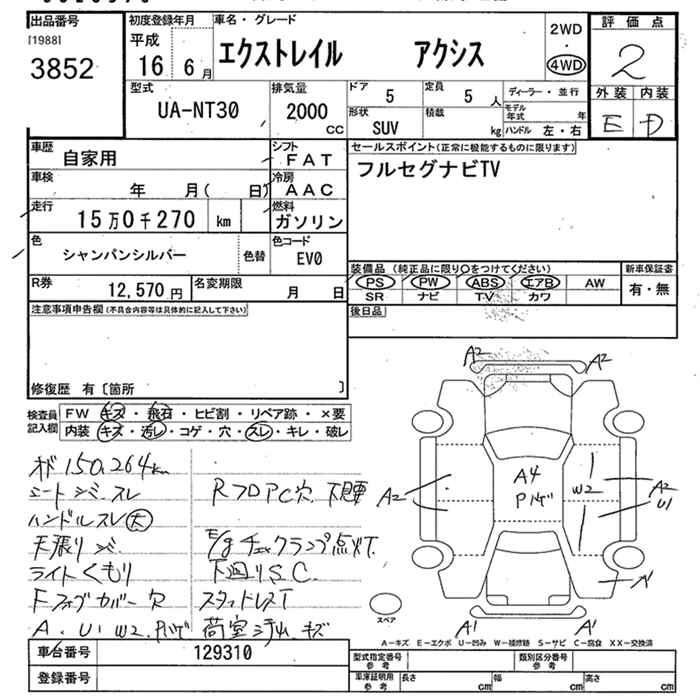 出品番号
[1988]
3852
初度登録年月
平成
16 6月
車名・グレード
エクストレイル アクシス
2WD
・
4WD
評価点
2
外装 内装
E D
型式
UA-NT30
排気量
2000
CC
ドア
5
定員
5 人
形状
SUV
積載
kg
ディーラー・並行
モデル年式 年
ハンドル 左・右
車歴
自家用
シフト
FAT
車検
年 月( 日)
冷房
AAC
走行
15万0千270 km
燃料
ガソリン
色
シャンパンシルバー
色替
色コード
EV0
R券
12,570円
名変期限
月 日
セールスポイント(正常に機能するものに限ります)
フルセグナビTV
装備品 (純正品に限り○をつけてください)
PS PW ABS エアB AW
SR ナビ TV カワ
新車保証書
有・無
後日品
注意事項申告欄(不具合内容等は具体的に記入して下さい)
修復歴 有〔箇所 〕
検査員記入欄
FW キズ・飛石・ヒビ割・リペア跡・×要
内装 キズ・汚レ・コゲ・穴・スレ・キレ・破レ
150,264km
シートシミ スレ
ハンドルスレ 大
天張りシミ
ライトくもり
Fフォグカバー欠
A、U、W2、Pハゲ
RフロアC穴 下廻要
E/gチェックランプ点灯
下廻りS.C.
スタッドレスT
荷室汚れ キズ
A2 A2
A2
A4
Pハゲ
W2
A2
U1
A'
A' A'
スペア
A-キズ E-エクボ U-凹み W-補修跡 S-サビ C-腐食 XX-交換済
車台番号
129310
登録番号
型式指定番号
参考
類別区分番号
参考
車庫証明用
参考
長さ cm
幅 cm
高さ cm